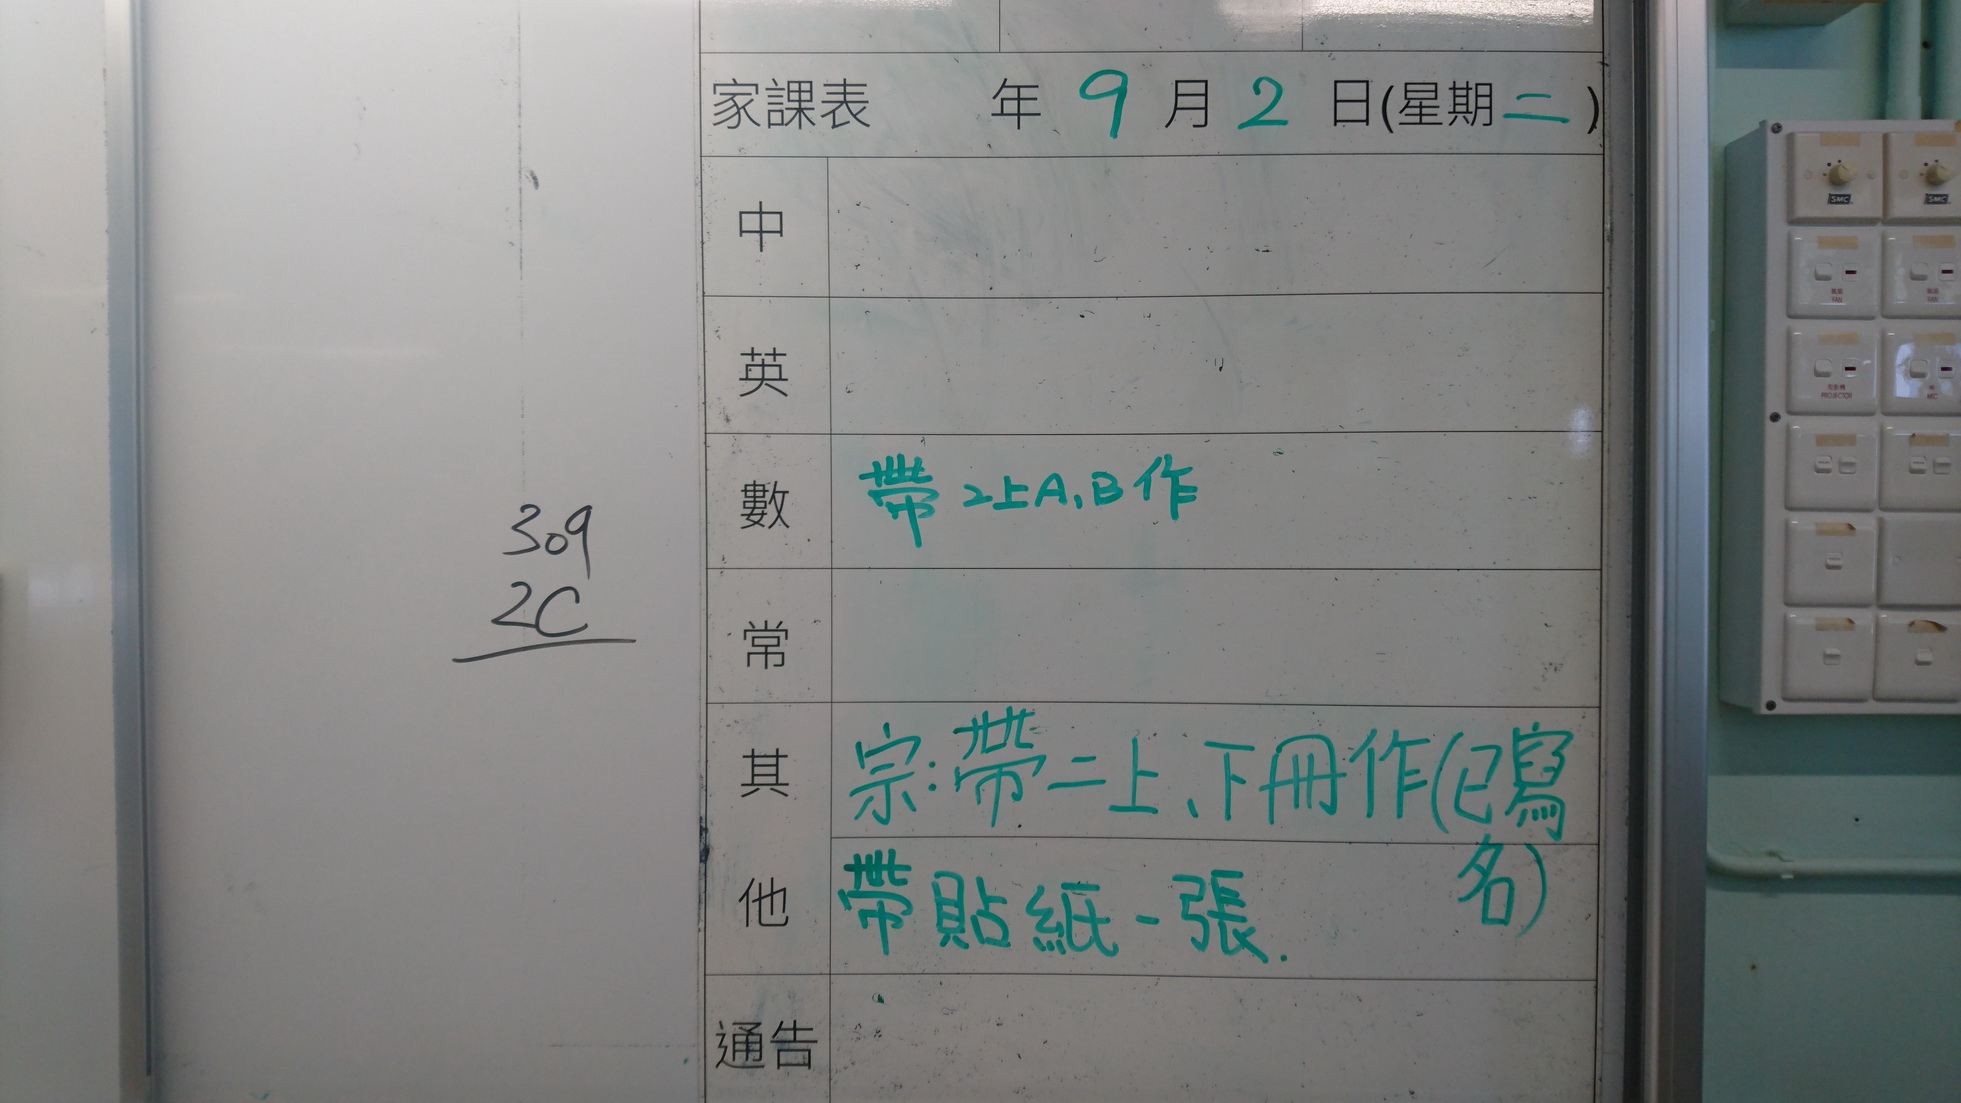 家課表 年 9 月 2 日(星期二)
中
英
數 帶 2上A、B作
309
2C
常
其他
宗:帶二上、下冊作(已寫名)
帶貼紙一張.
通告
SMC SMC
FAN FAN
PROJECTOR